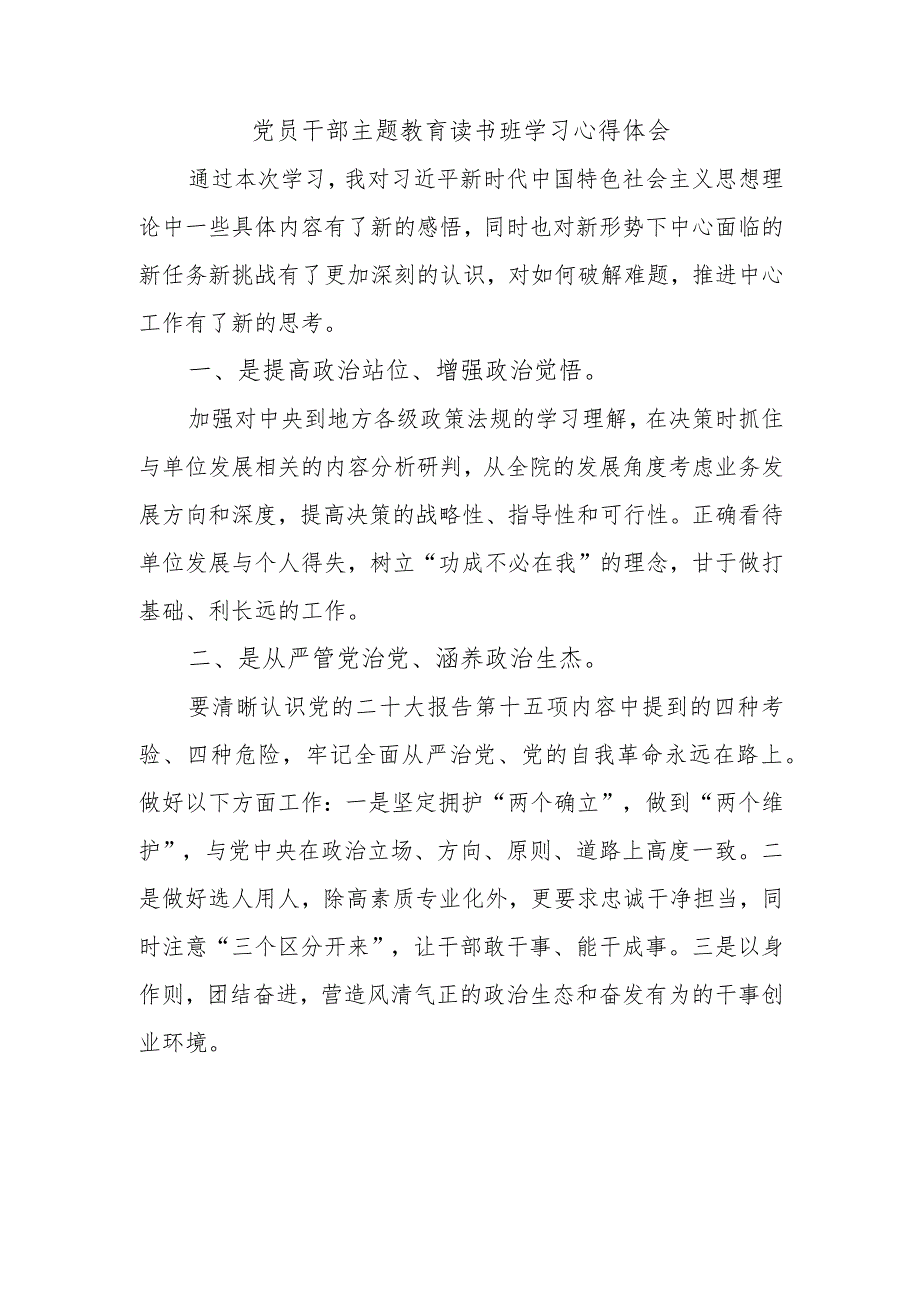 党员干部主题教育读书班学习心得体会
通过本次学习，我对习近平新时代中国特色社会主义思想理
论中一些具体内容有了新的感悟，同时也对新形势下中心面临的
新任务新挑战有了更加深刻的认识，对如何破解难题，推进中心
工作有了新的思考。
一、是提高政治站位、增强政治觉悟。
加强对中央到地方各级政策法规的学习理解，在决策时抓住
与单位发展相关的内容分析研判，从全院的发展角度考虑业务发
展方向和深度，提高决策的战略性、指导性和可行性。正确看待
单位发展与个人得失，树立“功成不必在我”的理念，甘于做打
基础、利长远的工作。
二、是从严管党治党、涵养政治生杰。
要清晰认识党的二十大报告第十五项内容中提到的四种考
验、四种危险，牢记全面从严治党、党的自我革命永远在路上。
做好以下方面工作：一是坚定拥护“两个确立”，做到“两个维
护”，与党中央在政治立场、方向、原则、道路上高度一致。二
是做好选人用人，除高素质专业化外，更要求忠诚干净担当，同
时注意“三个区分开来”，让干部敢干事、能干成事。三是以身
作则，团结奋进，营造风清气正的政治生态和奋发有为的干事创
业环境。